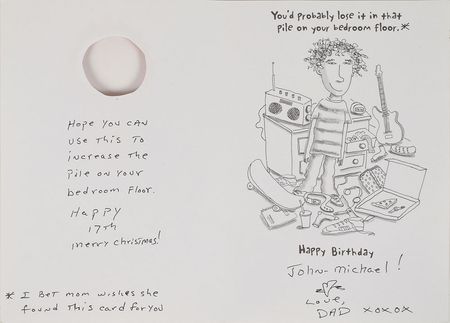 Hope you can
use this to
increase the
pile on your
bedroom floor.
Happy
17th
merry christmas!
* I Bet mom wishes she
found this card for you
You'd probably lose it in that
pile on your bedroom floor.*
Happy Birthday
John-Michael!
Love,
DAD xoxox